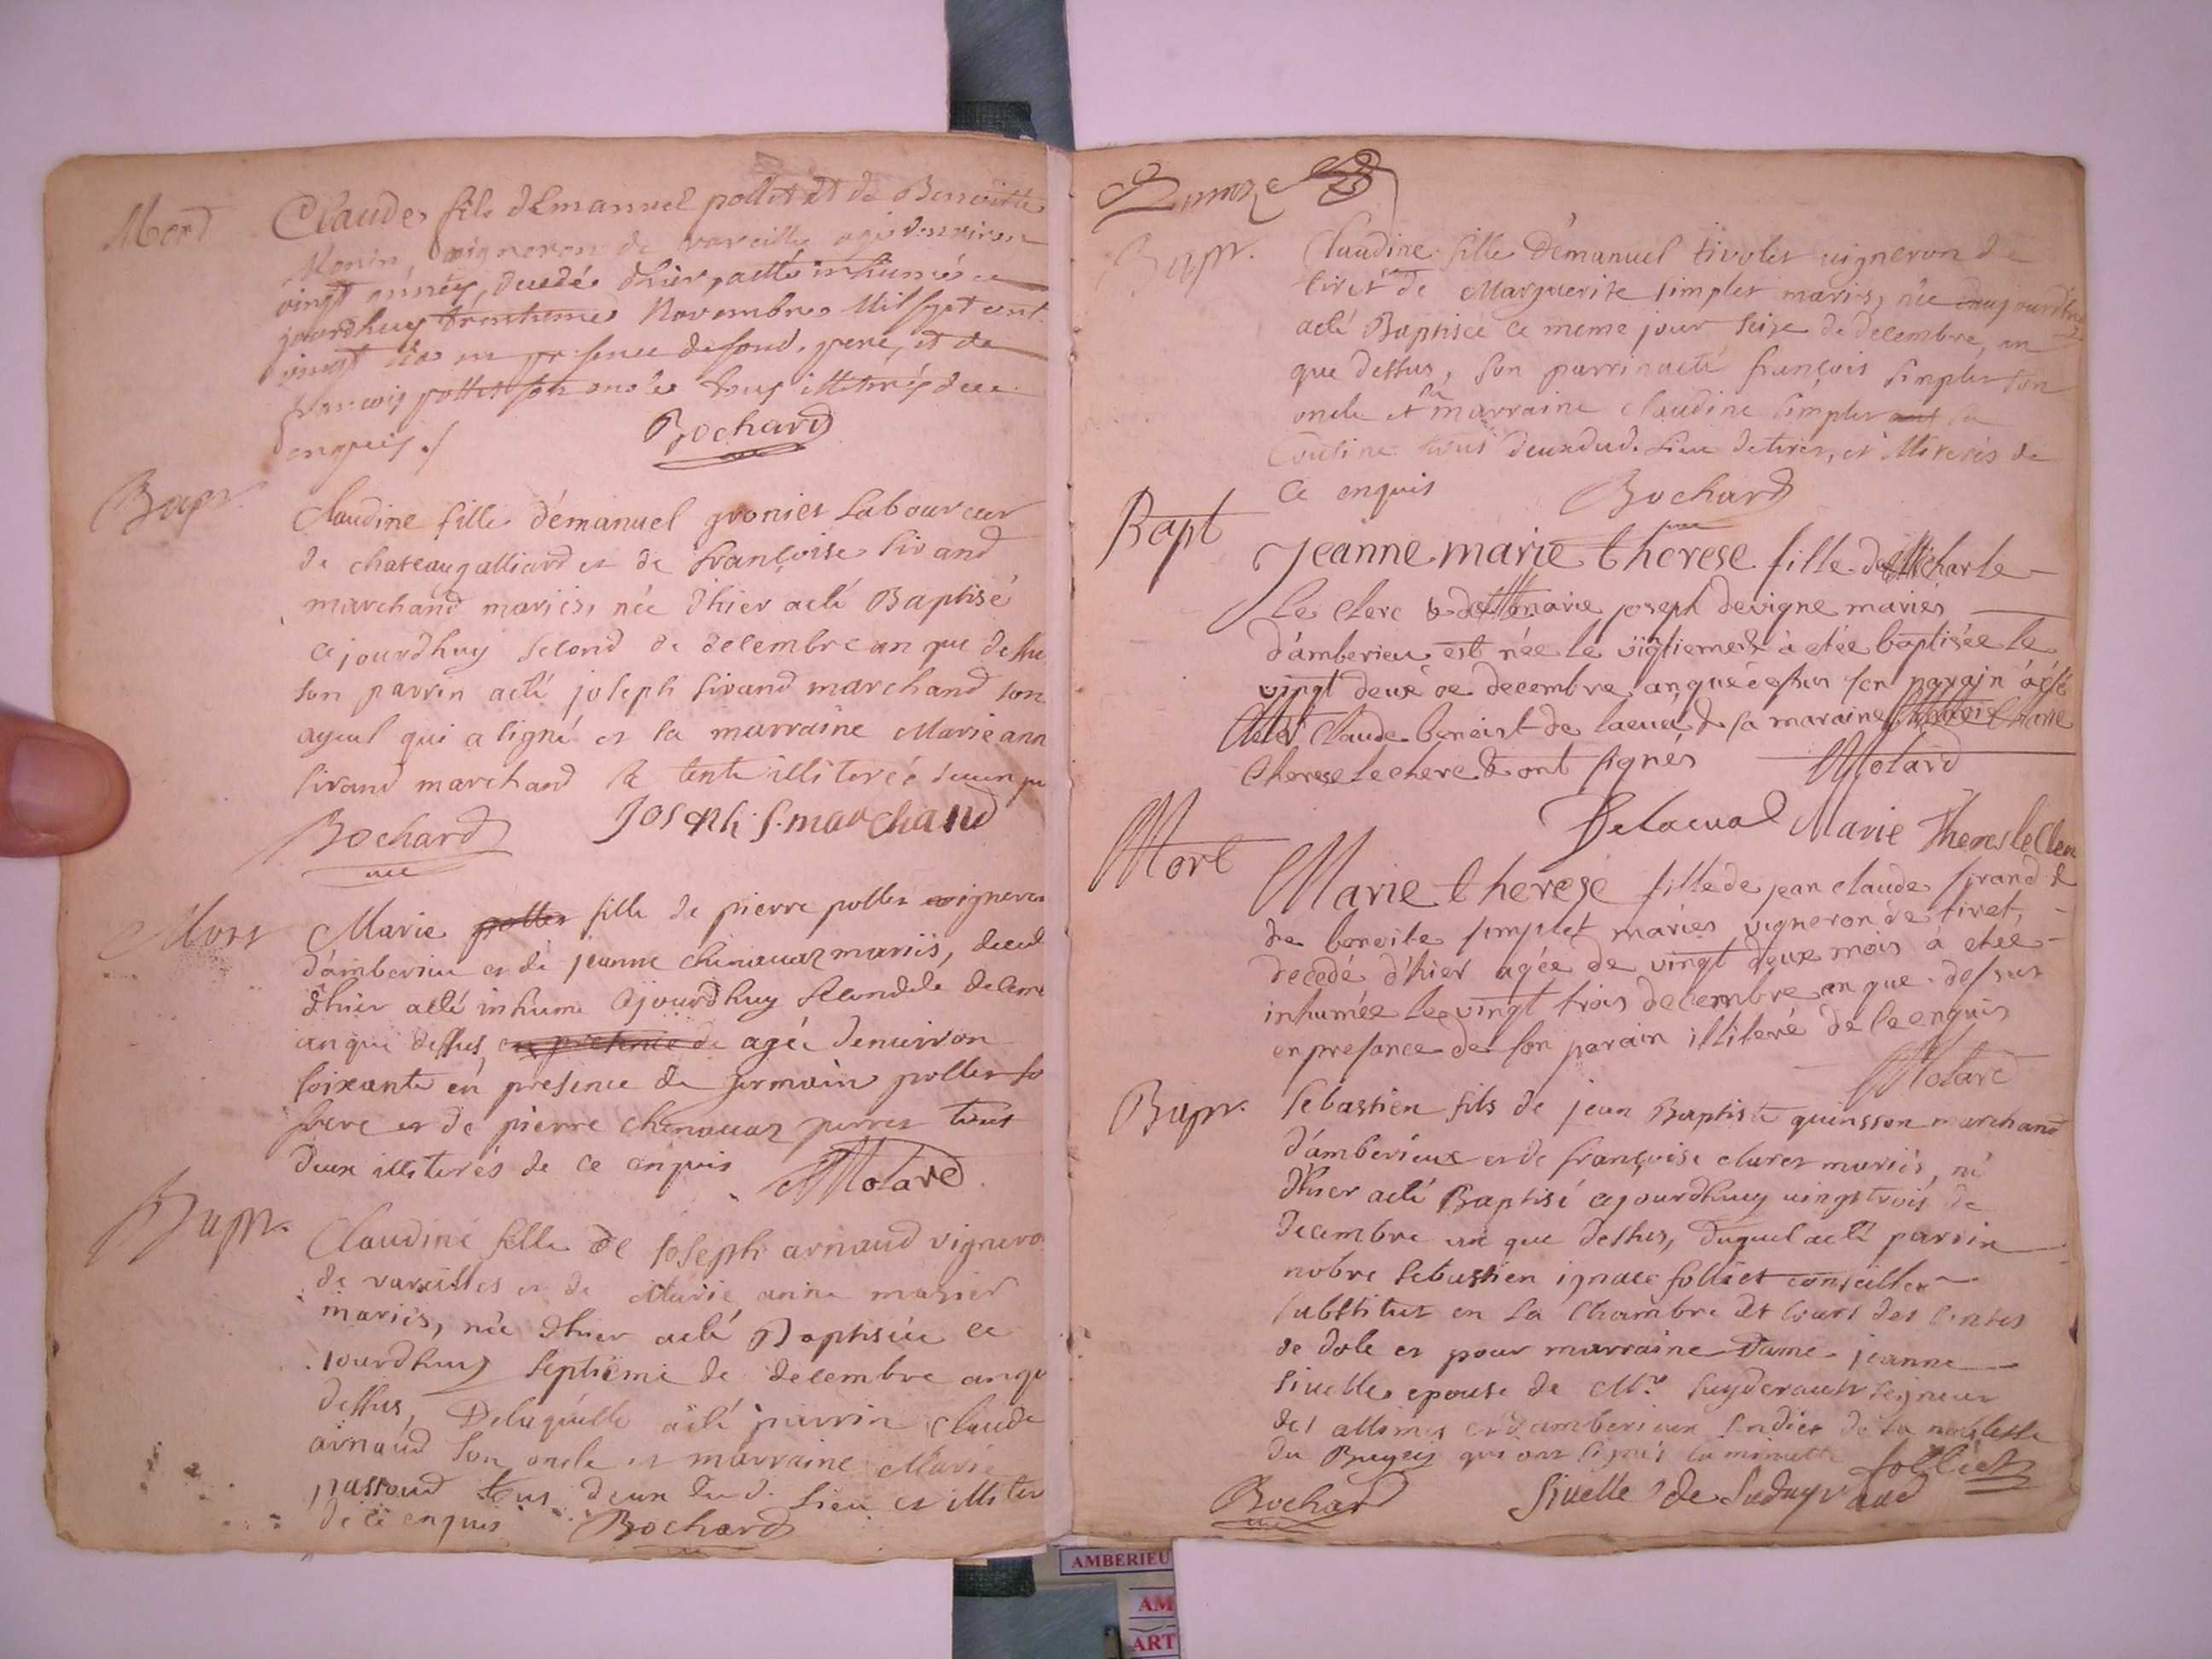 Mort
Claude fils d'Emanuel pollet et de Benoitte
Monin, vigneron de vareille agé denviron
vingt années, decedé d'hier a etté inhumé ce
jourdhuy trentieme Novembre Mil sept cent
vingt en presence de sond. pere, et de
francois pollet son oncle tous illiterés de ce
enquis ./ Bochard
Bapt.
Claudine fille d'émanuel gronier Laboureur
de chateaugalliard et de françoise Sirand
marchand mariés, née d'hier a eté Baptisé
cejourdhuy second de decembre an que dessu
son parrin a eté joseph sirand marchand son
ayeul qui a signé et la marraine Marie ann
Sirand marchand sa tente illiterée
Bochard Joseph S. marchand
Mort
Marie pollet fille de pierre pollet vigneron
d'amberieu et de jeanne chenavaz mariés, deced
d'hier a eté inhumé cejourdhuy second de decem
an que dessus, en presence de agée denuiron
soixante en presence de germain pollet so
frere et de pierre chenavaz tous
deux illiterés de ce enquis Molard
Bapt.
Claudine fille de Joseph arnaud vignero
de vareilles et de Marie anne
mariés, née d'hier a eté Baptisée ce
jourdhuy septième de decembre an qu
dessus, Delaquelle a eté parrin Claude
arnaud son oncle et marraine Marie
passoud tous deux dud. Lieu et illiter
de ce enquis Bochard
Bapt.
Claudine fille D'émanuel tivolet vigneron de
tiret de Marguerite simplet mariés, née
a eté Baptisée ce meme jour seize de decembre, an
que dessus, son parrin a eté françois simplet son
oncle et sa marraine claudine simplet sa
cousine tous deux dud. Lieu de tiret, et illiterés de
ce enquis Bochard
Bapt
Jeanne marie therese fille de charle
le clerc & de marie joseph devigne mariés
d'amberieu est née le vigtieme & à etée baptisée le
vingt deux de decembre an que dessus son parain a esté
Claude benoist de lacua & sa maraine Marie
therese le clerc & ont signés Molard
Delacua Marie Theres le Cler
Mort
Marie therese fille de jean claude sirand &
de benoite simplet mariés vigneron de tiret,
decedé d'hier agée de vingt deux mois à etée
inhumée le vingt trois decembre an que dessus
en presance de son parain illiteré de ce enquis
Molard
Bapt.
Sebastien fils de jean Baptiste quinsson marchand
d'amberieux et de françoise claret mariés, né
d'hier a eté Baptisé cejourdhuy vingt trois de
decembre an que dessus, duquel a eté parrin
nobre Sebastien ignace folliet conseiller
substitut en la Chambre et Cour des Contes
de dole et pour marraine Dame jeanne
Sivelle epouse de Mr. seigneur
des allimes et d'amberieux sindic de la noblesse
du Bugeis qui ont signés la minutte folliet
Bochard Sivelle de
AMBERIEU
AM
ART